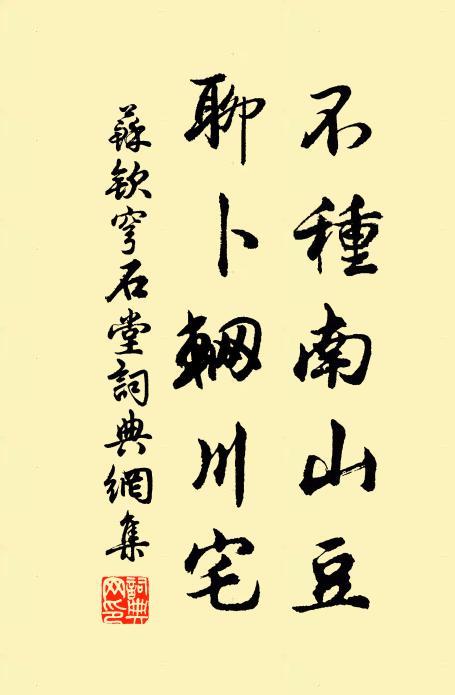 不種南山豆
聊卜輞川宅
蘇欽穹石堂詞典網集
詞典